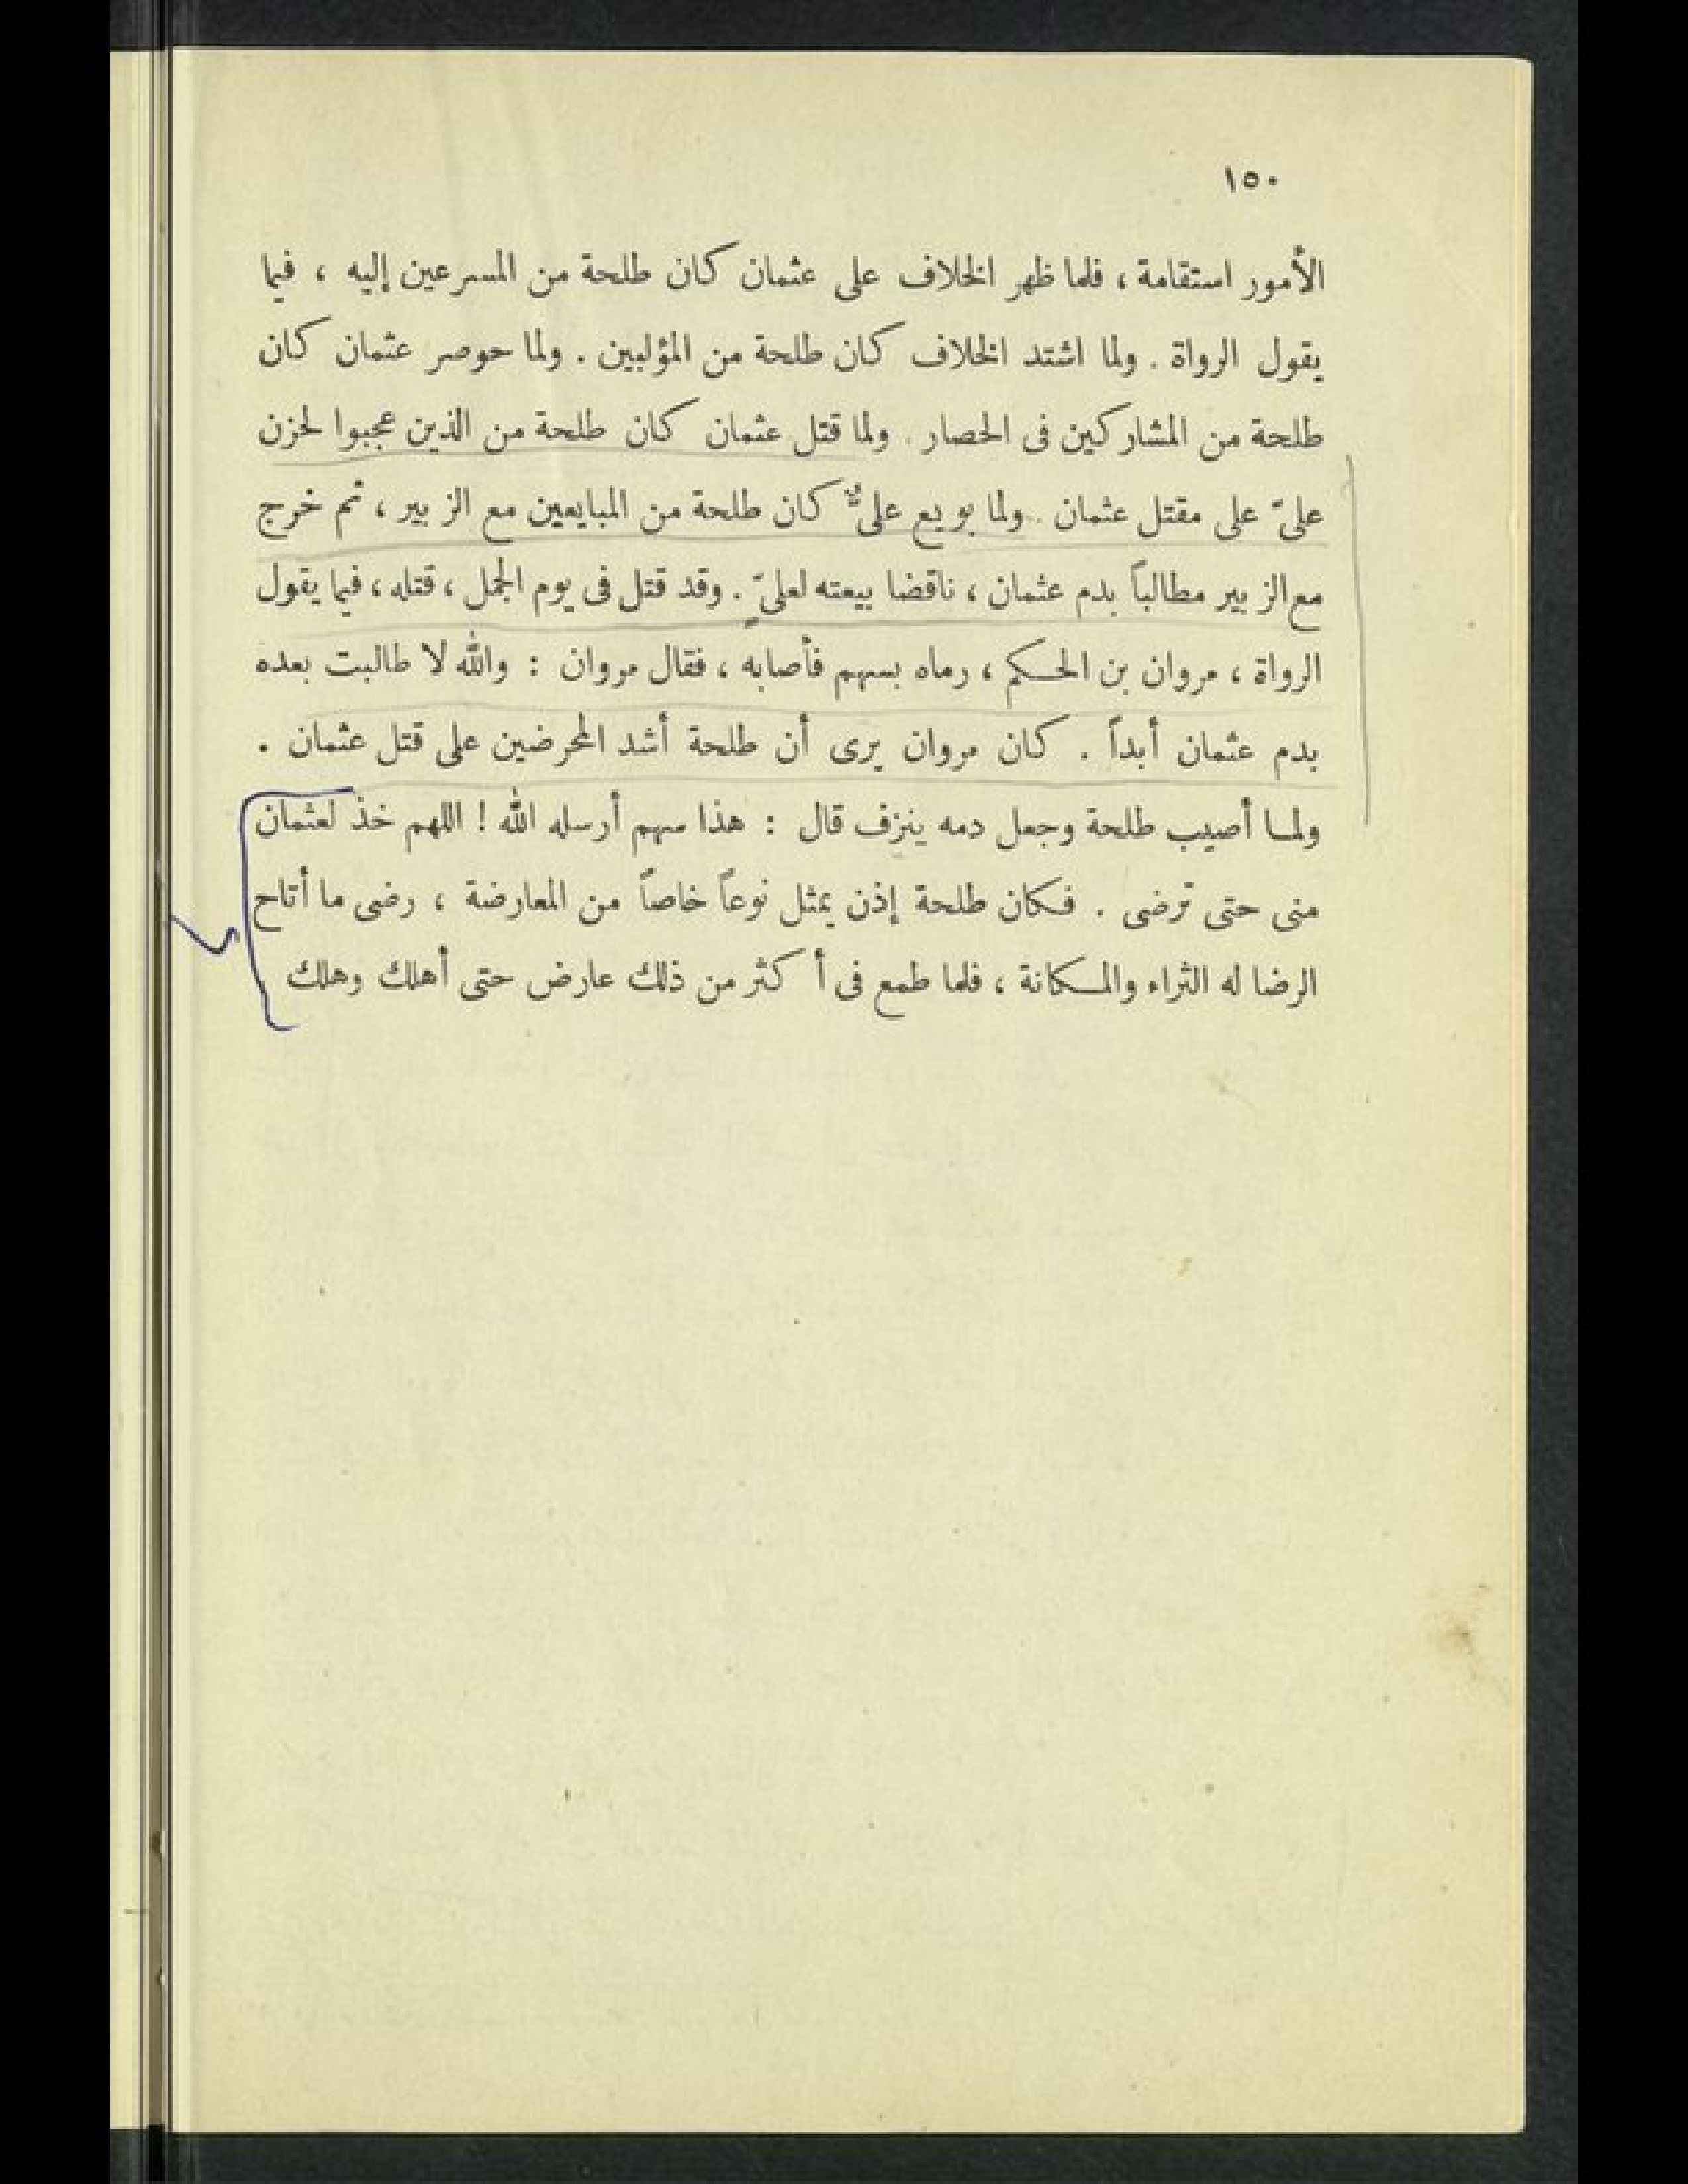 ١٥٠
الأمور استقامة ، فلما ظهر الخلاف على عثمان كان طلحة من المسرعين إليه ، فيما
يقول الرواة . ولما اشتد الخلاف كان طلحة من المؤلبين . ولما حوصر عثمان كان
طلحة من المشاركين فى الحصار . ولما قتل عثمان كان طلحة من الذين عجبوا لحزن
علىّ على مقتل عثمان . ولما بويع علىٌّ كان طلحة من المبايعين مع الزبير ، ثم خرج
مع الزبير مطالباً بدم عثمان ، ناقضا بيعته لعلىّ . وقد قتل فى يوم الجمل ، قتله ، فيما يقول
الرواة ، مروان بن الحكم ، رماه بسهم فأصابه ، فقال مروان : والله لا طالبت بعده
بدم عثمان أبداً . كان مروان يرى أن طلحة أشد المحرضين على قتل عثمان .
ولما أصيب طلحة وجعل دمه ينزف قال : هذا سهم أرسله الله ! اللهم خذ لعثمان
منى حتى ترضى . فكان طلحة إذن يمثل نوعاً خاصاً من المعارضة ، رضى ما أتاح
الرضا له الثراء والمكانة ، فلما طمع فى أكثر من ذلك عارض حتى أهلك وهلك